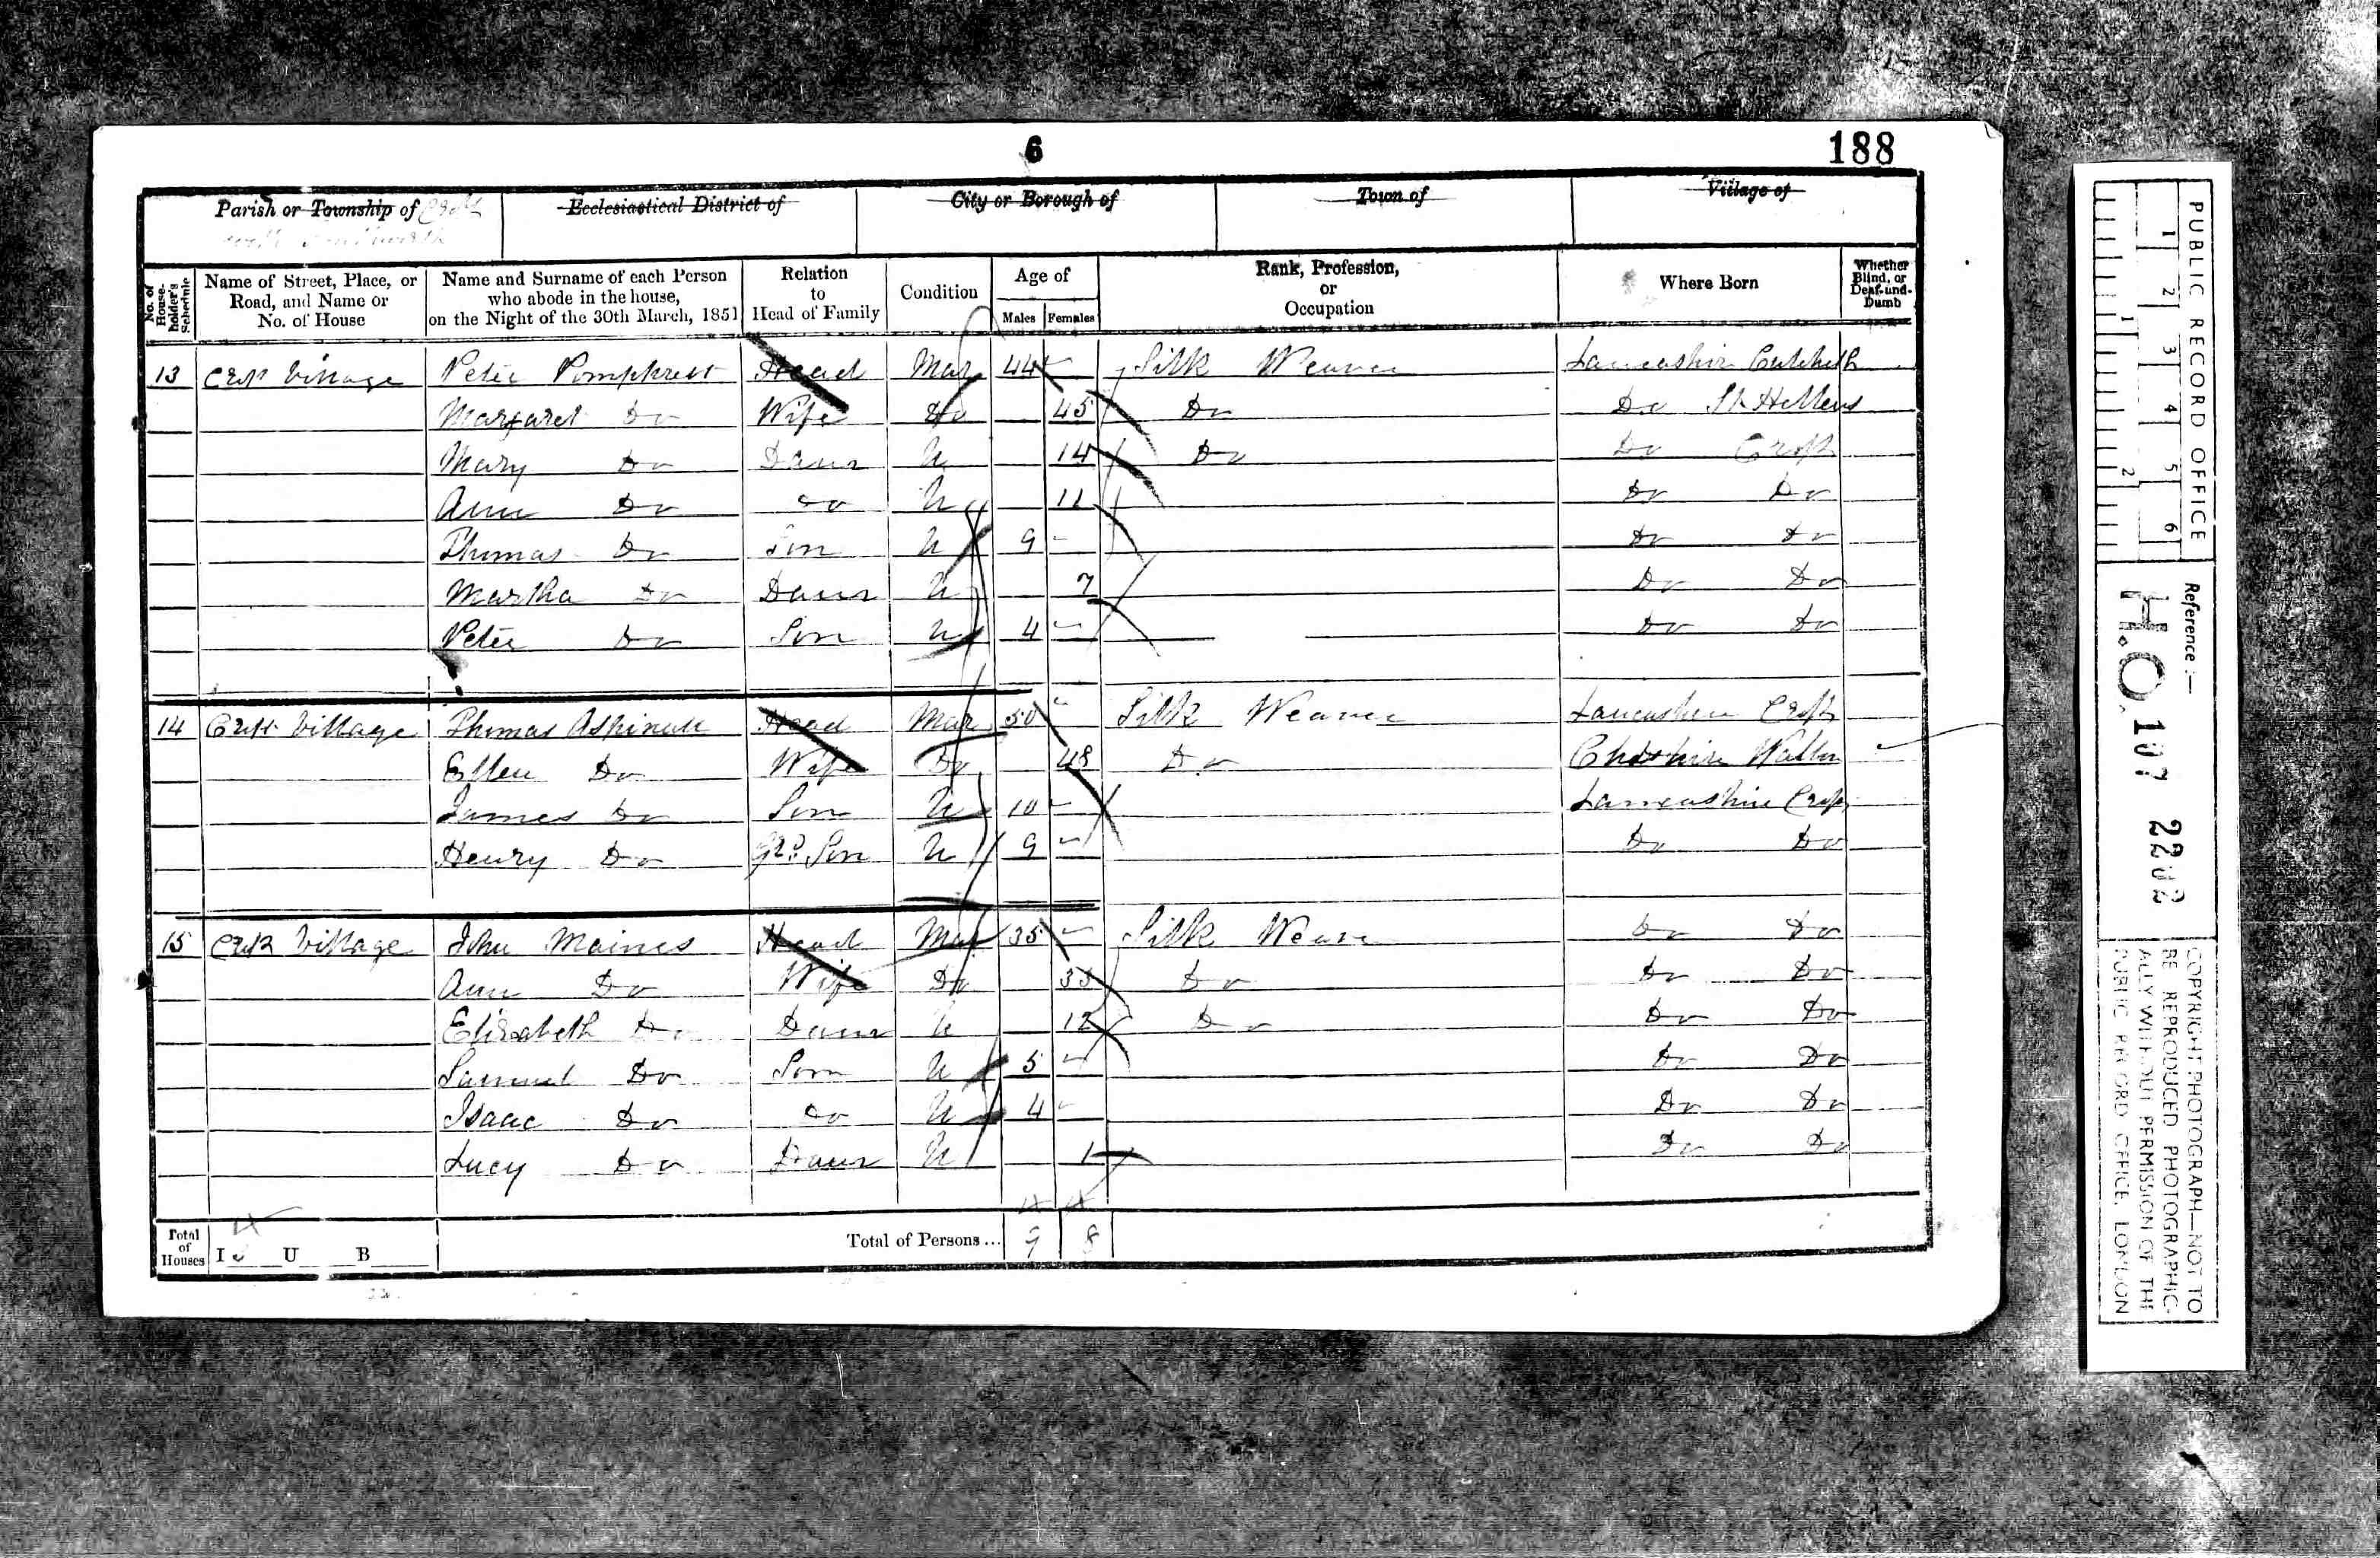 6
188
Parish or Township of Croft
with Southworth
Ecclesiastical District of
City or Borough of
Town of
Village of
No. of House-holder's Schedule
Name of Street, Place, or Road, and Name or No. of House
Name and Surname of each Person who abode in the house, on the Night of the 30th March, 1851
Relation to Head of Family
Condition
Age of
Males Females
Rank, Profession, or Occupation
Where Born
Whether Blind, or Deaf-and-Dumb
13 Croft Village Peter Pomphrett Head Mar 44 Silk Weaver Lancashire Culcheth
Margaret Do Wife Do 45 Do Do St Hellens
Mary Do Daur U 14 Do Do Croft
Ann Do Do U 11 Do Do
Thomas Do Son U 9 Do Do
Martha Do Daur U 7 Do Do
Peter Do Son U 4 Do Do
14 Croft Village Thomas Aspinall Head Mar 50 Silk Weaver Lancashire Croft
Ellen Do Wife Do 48 Do Cheshire
James Do Son U 10 Lancashire Croft
Henry Do Grd Son U 9 Do Do
15 Croft Village John Maines Head Mar 35 Silk Weaver Do Do
Ann Do Wife Do 35 Do Do Do
Elizabeth Do Daur U 12 Do Do Do
Samuel Do Son U 5 Do Do
Isaac Do Do U 4 Do Do
Lucy Do Daur U 1 Do Do
4 4 4
Total of Houses I 3 U B Total of Persons... 9 8
PUBLIC RECORD OFFICE
1 2 3 4 5 6
1 2
Reference :-
H.O. 107 2202
COPYRIGHT PHOTOGRAPH—NOT TO
BE REPRODUCED PHOTOGRAPHIC-
ALLY WITHOUT PERMISSION OF THE
PUBLIC RECORD OFFICE, LONDON